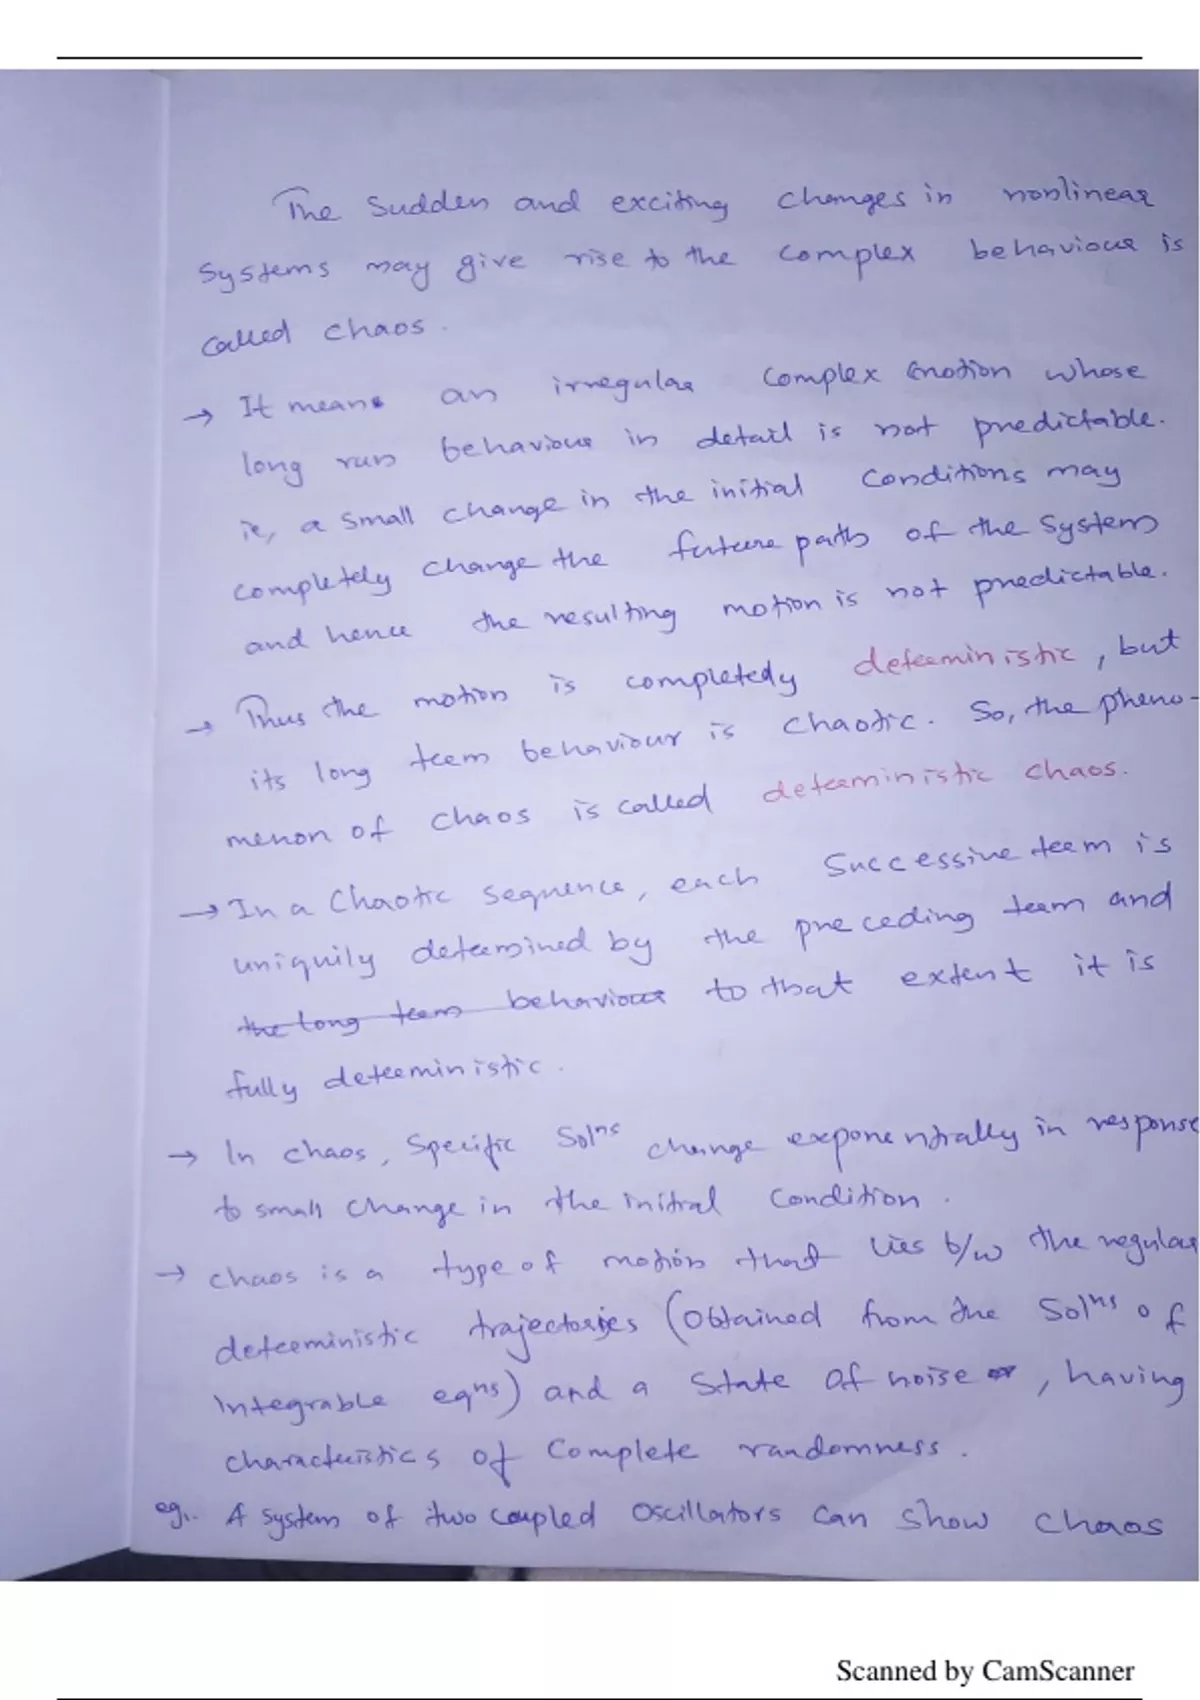 The sudden and exciting changes in nonlinear
systems may give rise to the complex behaviour is
called chaos.
→ It means an irregular complex motion whose
long run behaviour in detail is not predictable.
ie, a small change in the initial conditions may
completely change the future path of the system
and hence the resulting motion is not predictable.
→ Thus the motion is completedy deterministic, but
its long term behaviour is chaotic. So, the pheno-
menon of chaos is called deterministic chaos.
→ In a Chaotic sequence, each Successive term is
uniquily determined by the preceding term and
the long term behaviour to that extent it is
fully deterministic.
→ In chaos, Specific Solns change exponentially in response
to small change in the initial condition.
→ chaos is a type of motion that lies b/w the regular
deterministic trajectories (Obtained from the Solns of
integrable eqns) and a state of noise or, having
characteristics of complete randomness.
eg:. A system of two coupled oscillators can show chaos
Scanned by CamScanner